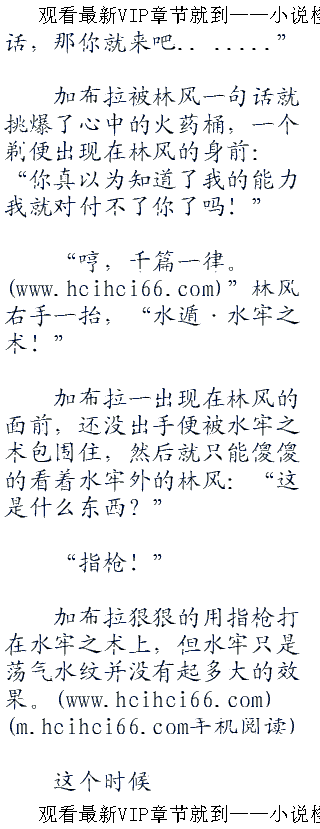 观看最新VIP章节就到——小说
话，那你就来吧.. .....”
加布拉被林风一句话就
挑爆了心中的火药桶，一个
剃便出现在林风的身前：
“你真以为知道了我的能力
我就对付不了你了吗！”
“哼，千篇一律。
(www.hcihci66.com)”林风
右手一抬，“水遁·水牢之
术！”
加布拉一出现在林风的
面前，还没出手便被水牢之
术包围住，然后就只能傻傻
的看着水牢外的林风：“这
是什么东西？”
“指枪！”
加布拉狠狠的用指枪打
在水牢之术上，但水牢只是
荡气水纹并没有起多大的效
果。(www.hcihci66.com)
(m.hcihci66.com手机阅读)
这个时候
观看最新VIP章节就到——小说